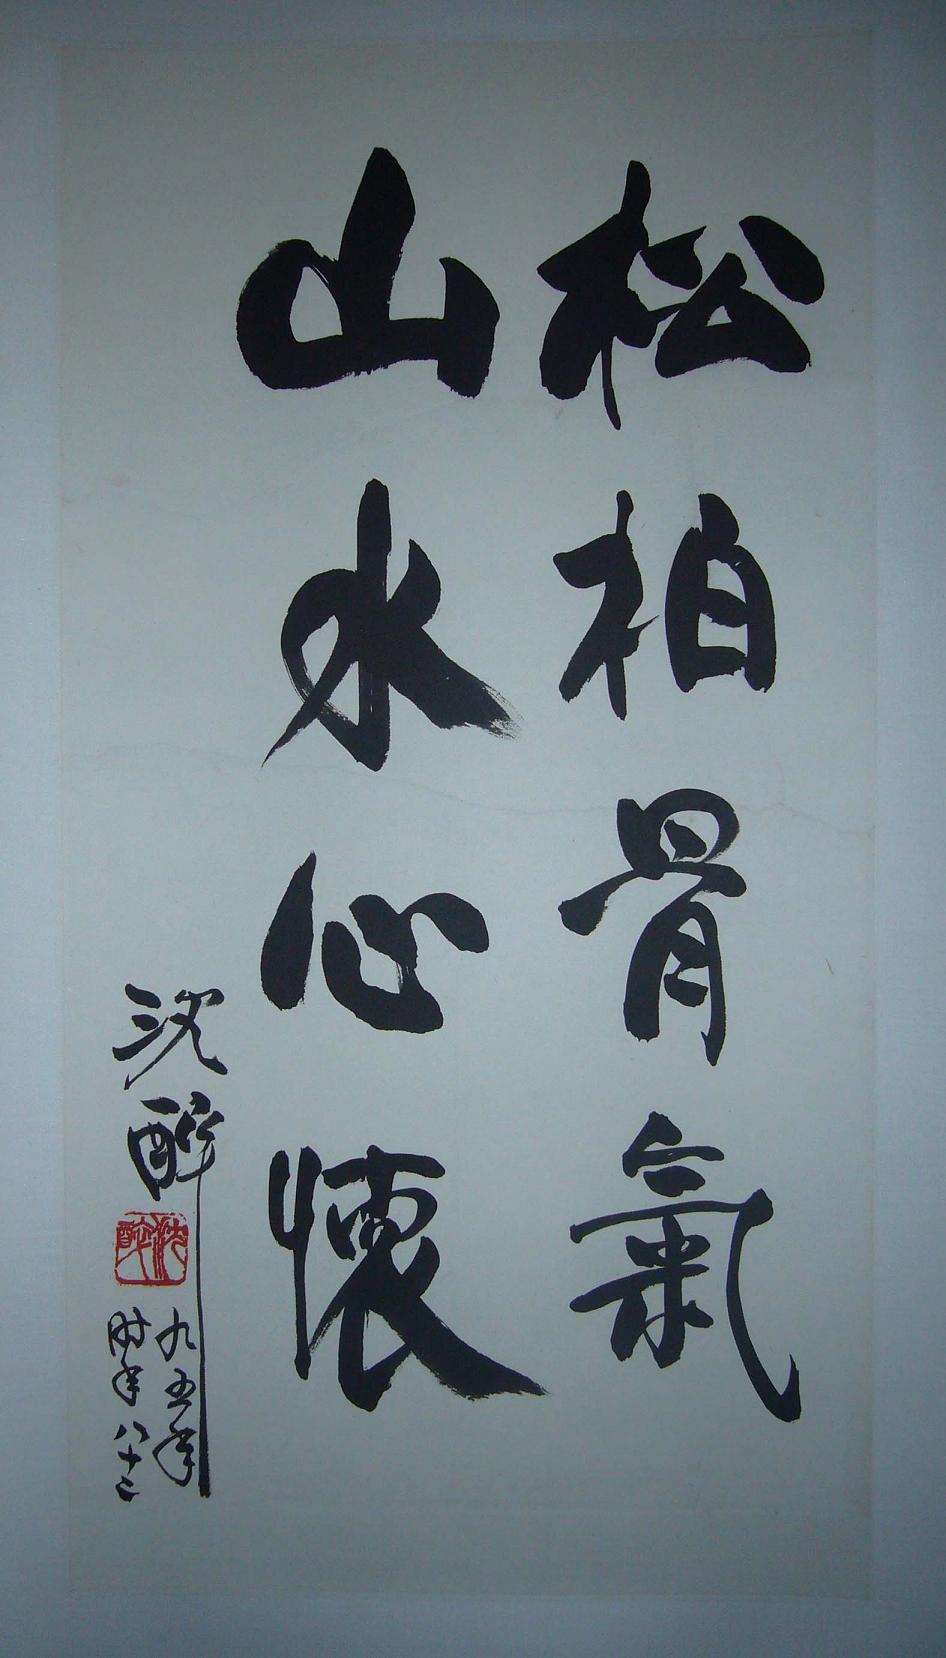 松柏骨氣
山水心懷
沈醉
沈醉
九五年
时年八十二